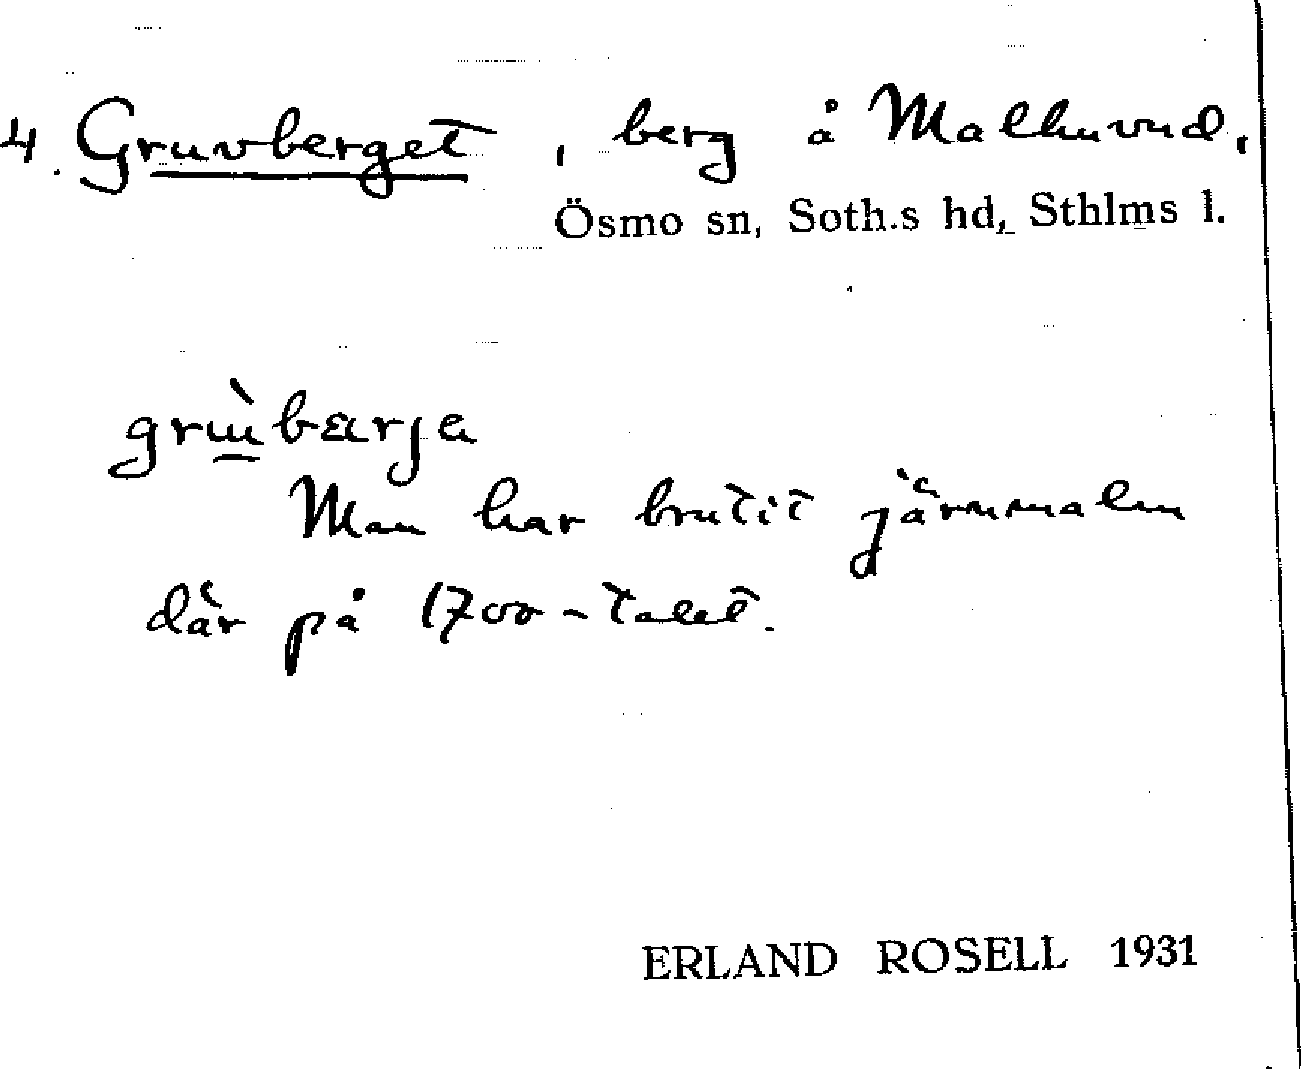 4. Gruvberget, berg å Malhuvud,
Ösmo sn, Soth.s hd, Sthlms l.
grɯ̀bærja
Man har brutit järnmalm
där på 1700-talet.
ERLAND ROSELL 1931